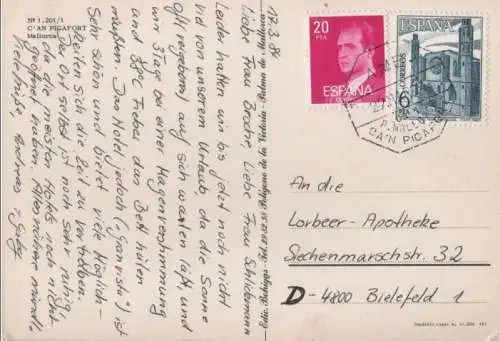 Nº 1.201/1
C'AN PICAFORT
Mallorca
17.3.84
Liebe Frau Brache, Liebe Frau Schlickmann
Leider hatten wir bis jetzt noch nicht
viel von unserem Urlaub, da die Sonne
auf sich warten läßt, und
wir 3 Tage bei einer Magenverstimmung
und 39°C Fieber das Bett hüten
mußten. Das Hotel jedoch (="Gran vista") ist
sehr schön und bietet viele Möglich-
keiten sich die Zeit zu vertreiben.
Der Ort selbst ist noch sehr ruhig
da die meisten Hotels noch nicht
geöffnet haben. Alles nähere mündl.
Viele Grüße, Andreas + Gaby
20
PTA
ESPAÑA
ESPAÑA
CORREOS
6
CA'N PICAFORT
An die
Lorbeer-Apotheke
Siechenmarschstr. 32
D-4800 Bielefeld 1